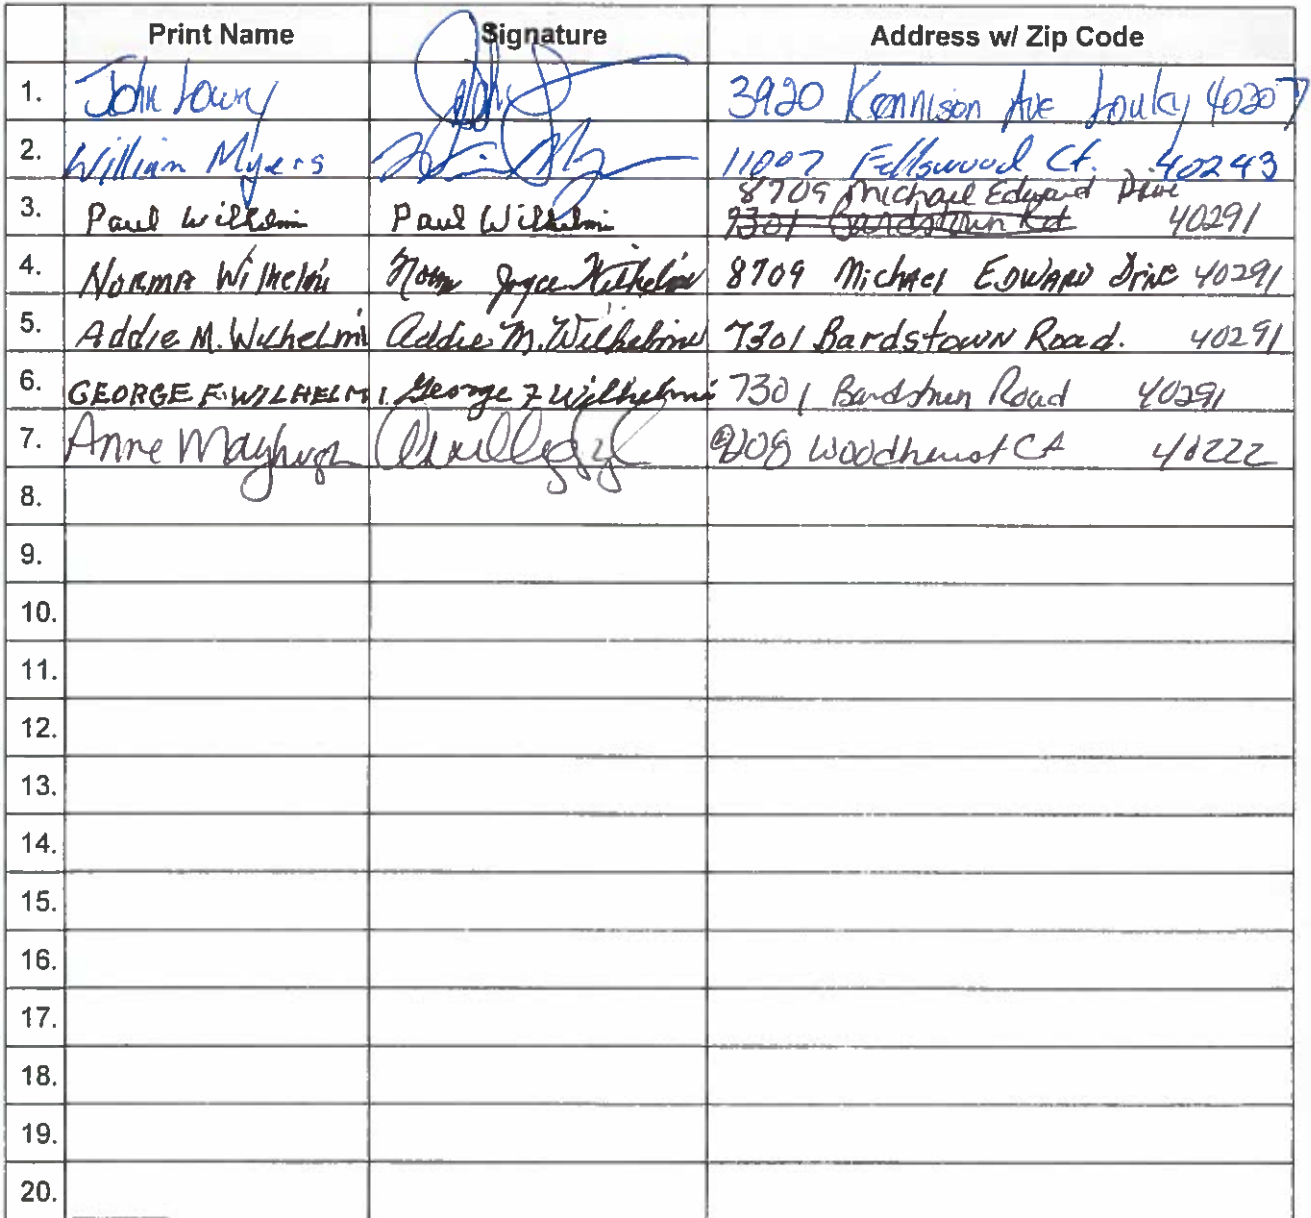 Print Name Signature Address w/ Zip Code
1. John Lowry John 3920 Kennison Ave Louky 40207
2. William Myers 11007 Fellswood Ct. 40243
8709 Michael Edward Drive
3. Paul Wilhelmi Paul Wilhelmi 7301 Bardstown Rd 40291
4. Norma Wilhelmi Norma Joyce Wilhelmi 8709 Michael EDWARD Drive 40291
5. Addie M. Wilhelmi Addie M. Wilhelmi 7301 Bardstown Road. 40291
6. GEORGE F. WILHELMI. George F Wilhelmi 7301 Bardstown Road 40291
7. Anne Mayhugh Woodhurst Ct 40222
8.
9.
10.
11.
12.
13.
14.
15.
16.
17.
18.
19.
20.